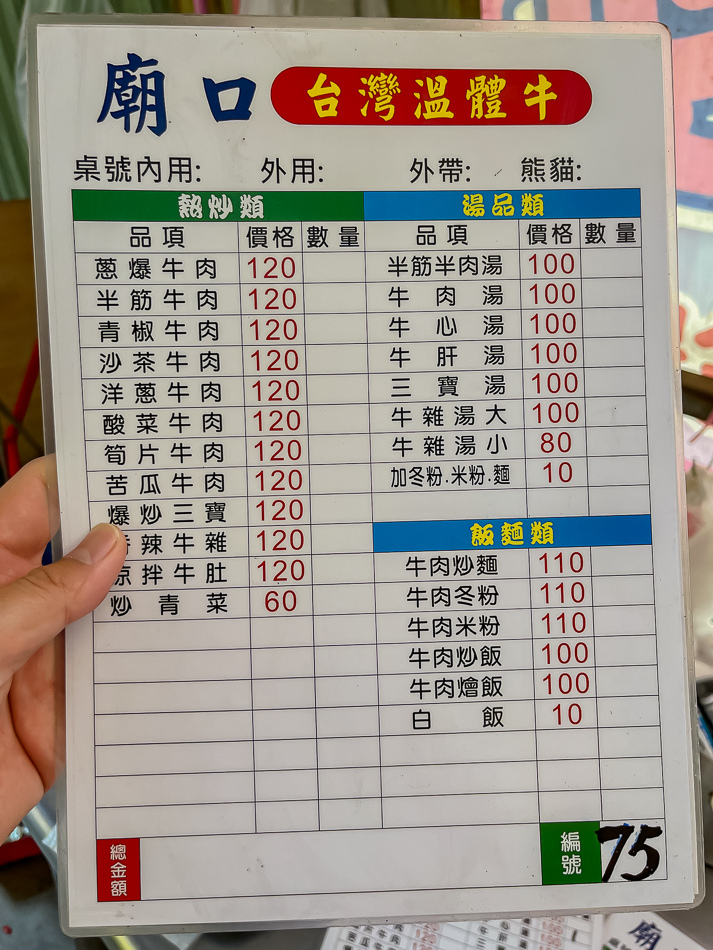 廟口 台灣溫體牛
桌號內用: 外用: 外帶: 熊貓:
熱炒類
品項 價格 數量
蔥爆牛肉 120
半筋牛肉 120
青椒牛肉 120
沙茶牛肉 120
洋蔥牛肉 120
酸菜牛肉 120
筍片牛肉 120
苦瓜牛肉 120
爆炒三寶 120
辣牛雜 120
拌牛肚 120
炒青菜 60
湯品類
品項 價格 數量
半筋半肉湯 100
牛肉湯 100
牛心湯 100
牛肝湯 100
三寶湯 100
牛雜湯大 100
牛雜湯小 80
加冬粉.米粉.麵 10
飯麵類
牛肉炒麵 110
牛肉冬粉 110
牛肉米粉 110
牛肉炒飯 100
牛肉燴飯 100
白飯 10
總金額
編號 75